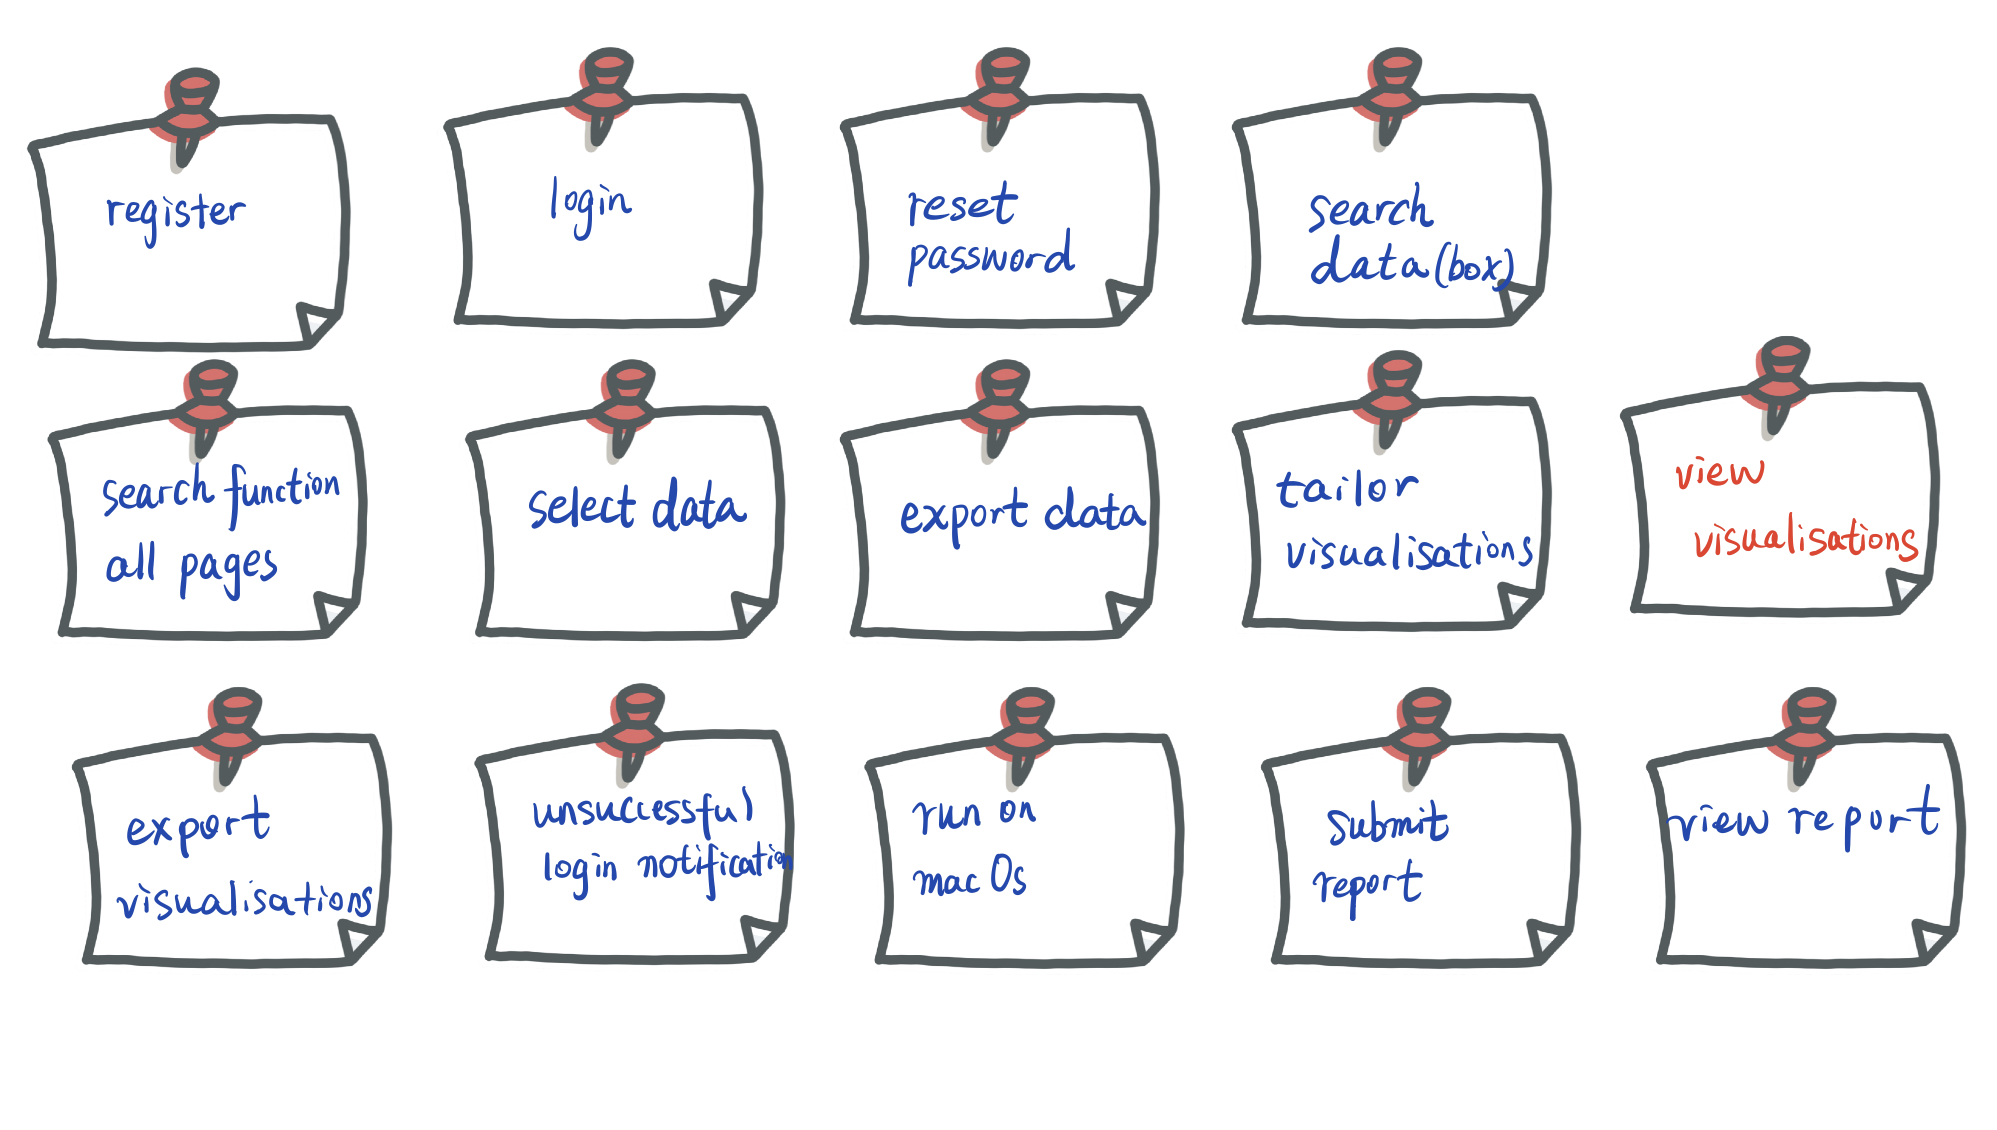 register
login
reset
password
search
data (box)
search function
all pages
select data
export data
tailor
visualisations
view
visualisations
export
visualisations
unsuccessful
login notification
run on
mac Os
submit
report
view report